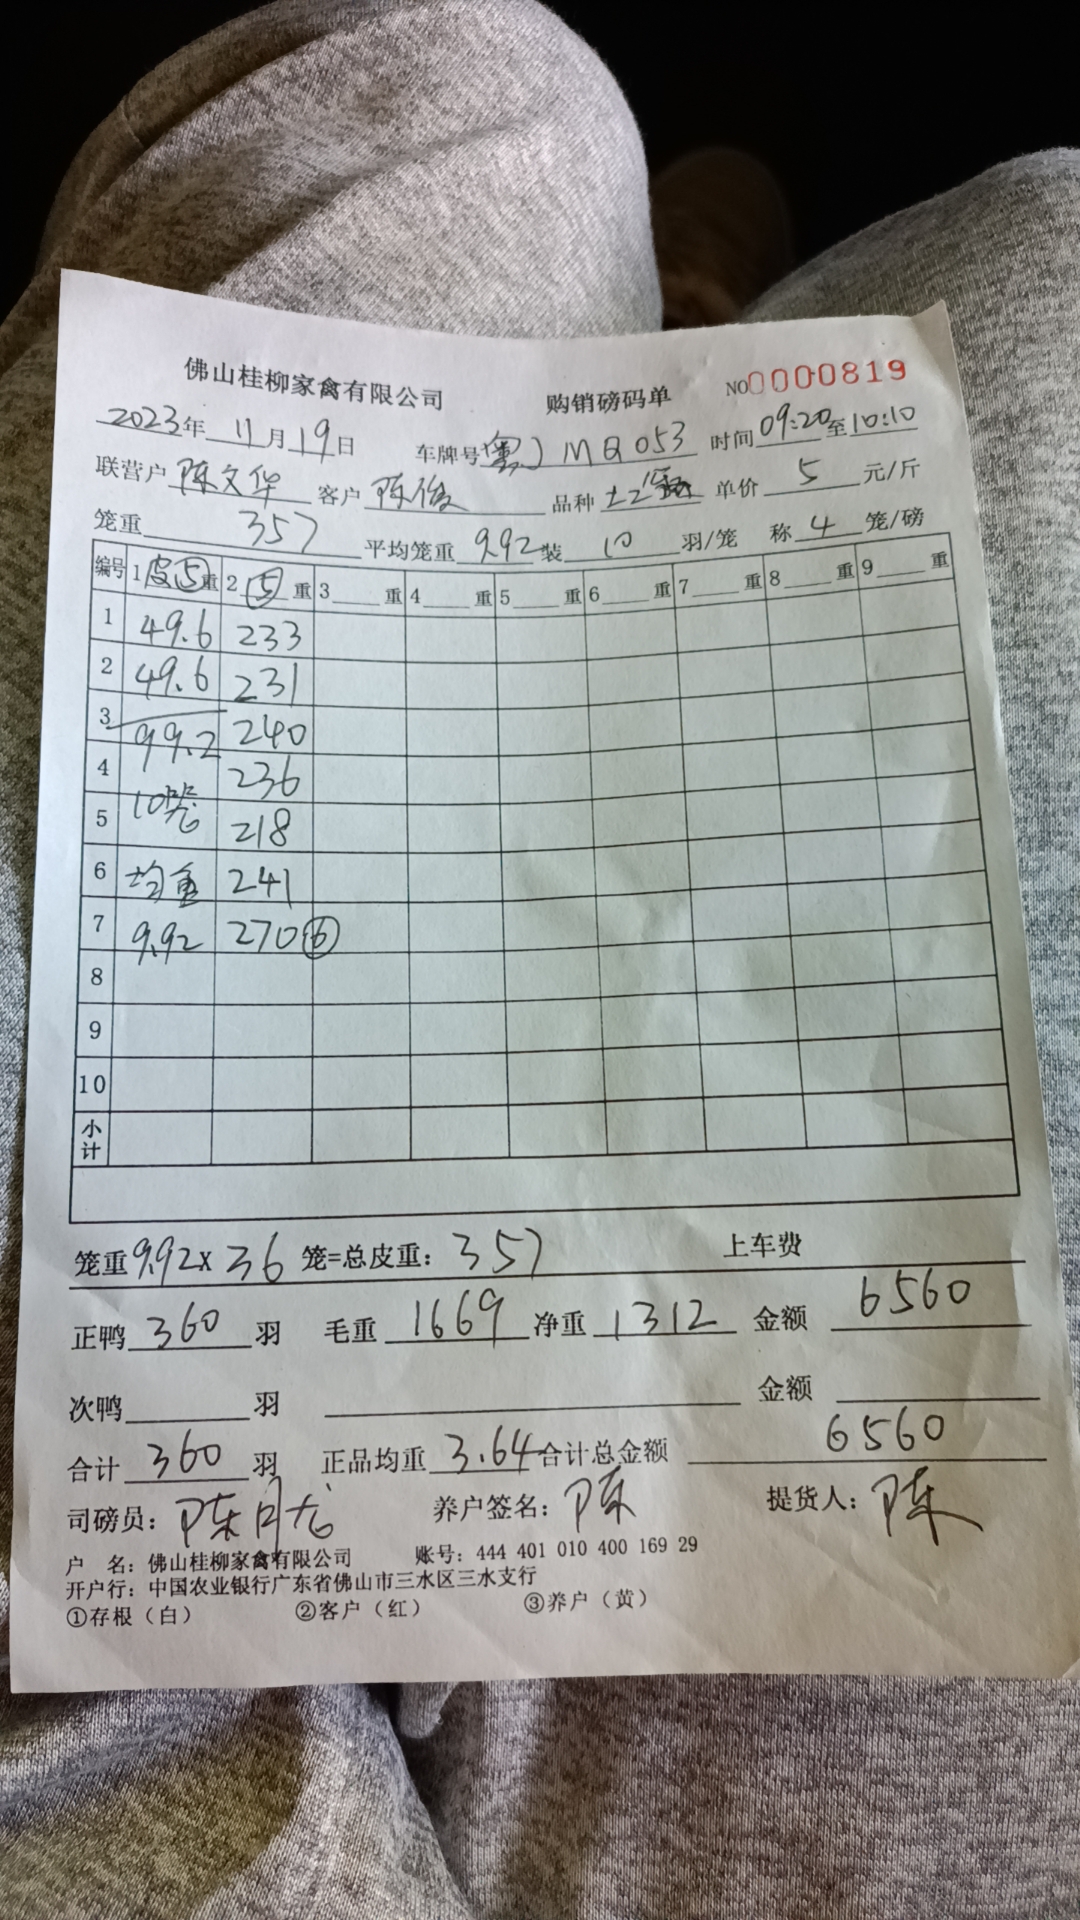 佛山桂柳家禽有限公司 购销磅码单 NO0000819
2023年 11月19日 车牌号粤J MQ053 时间09:20至10:10
联营户 陈文华 客户 陈俊 品种 单价 5 元/斤
笼重 357 平均笼重 9.92 装 10 羽/笼 称 4 笼/磅
编号 1 皮⑤重 2 ⑤ 重 3 重 4 重 5 重 6 重 7 重 8 重 9 重
1 49.6 233
2 49.6 231
3 99.2 240
4 10笼 236
5 218
6 均重 241
7 9.92 270⑥
8
9
10
小计
笼重9.92x36 笼=总皮重: 357 上车费
正鸭 360 羽 毛重 1669 净重 1312 金额 6560
次鸭 羽 金额
合计 360 羽 正品均重 3.64 合计总金额 6560
司磅员: 陈月龙 养户签名: 陈 提货人: 陈
户 名: 佛山桂柳家禽有限公司 账号: 444 401 010 400 169 29
开户行: 中国农业银行广东省佛山市三水区三水支行
①存根（白） ②客户（红） ③养户（黄）